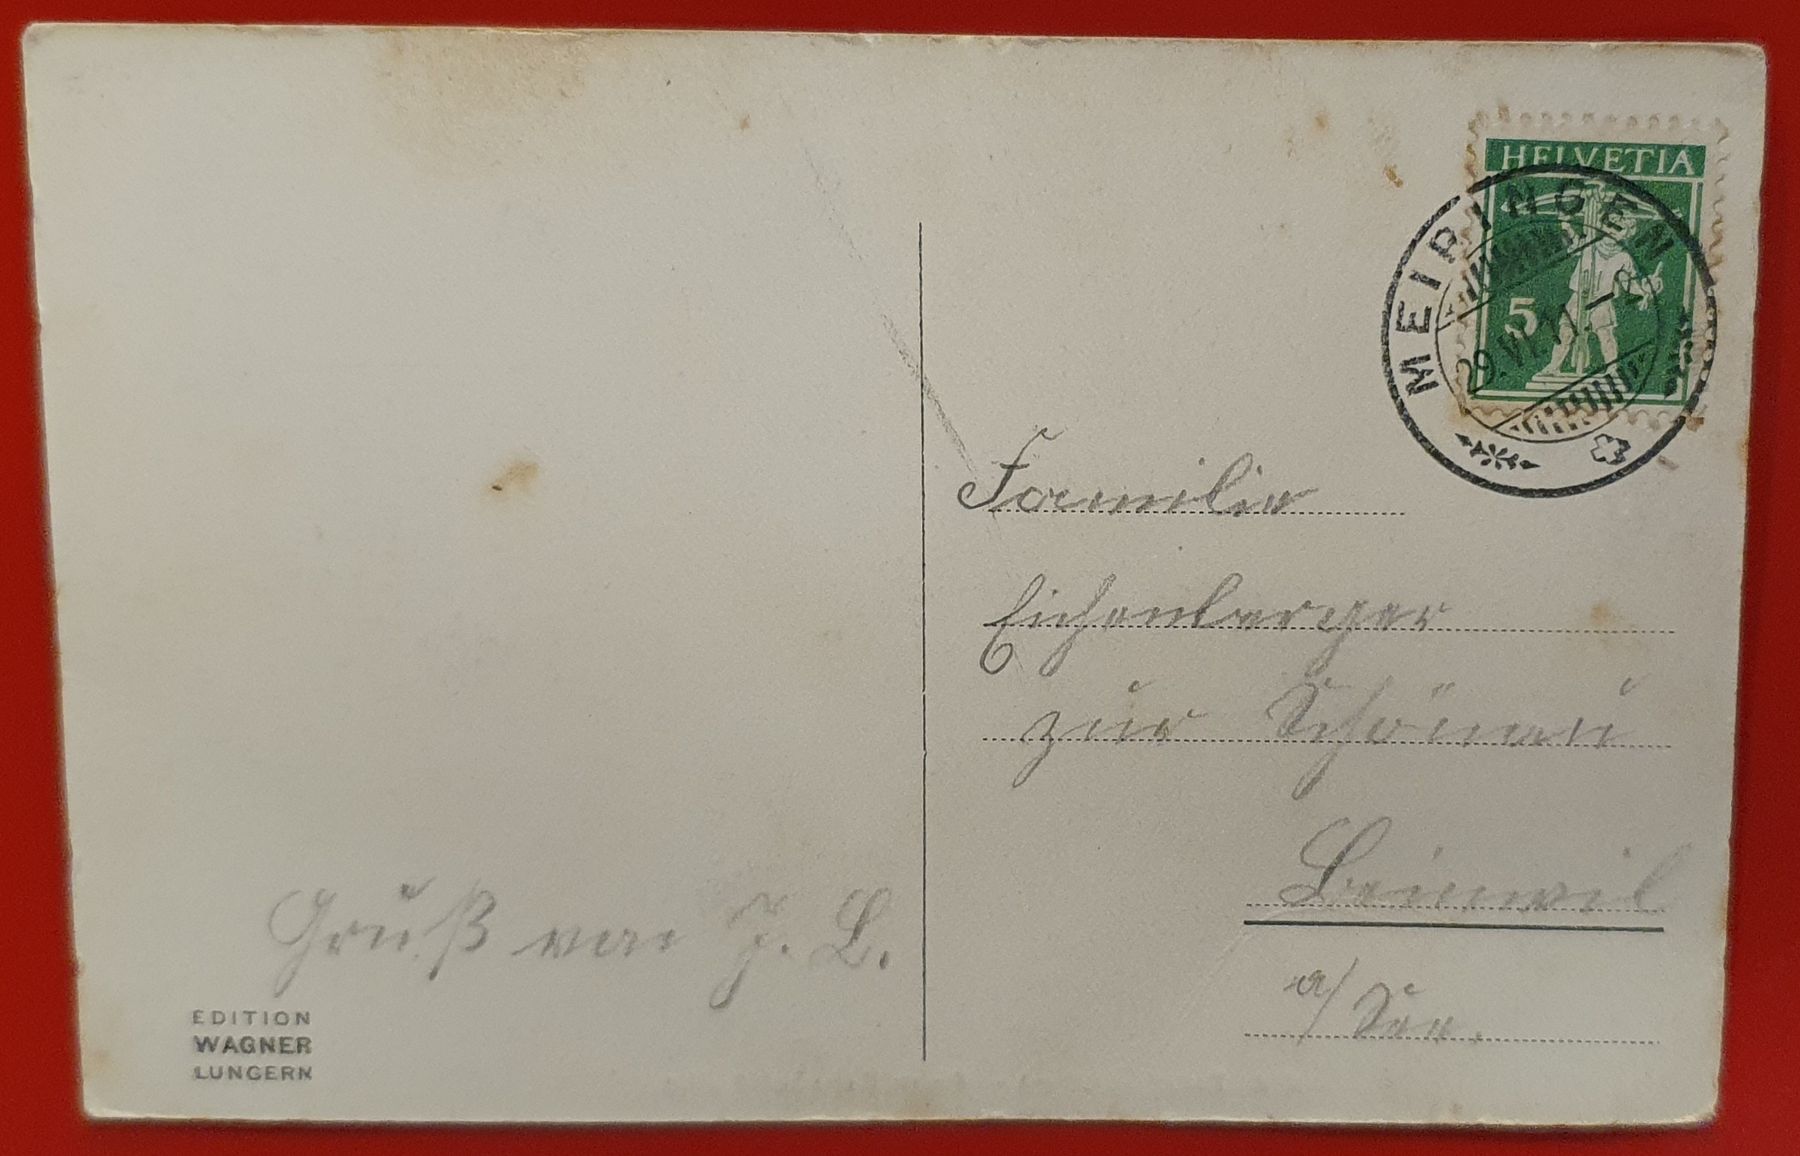 HELVETIA
5
MEIRINGEN
29.VI.11.–8
Familie
Eichenberger
zur Schönau
Beinwil
a/ See.
Gruß von J. B.
EDITION
WAGNER
LUNGERN